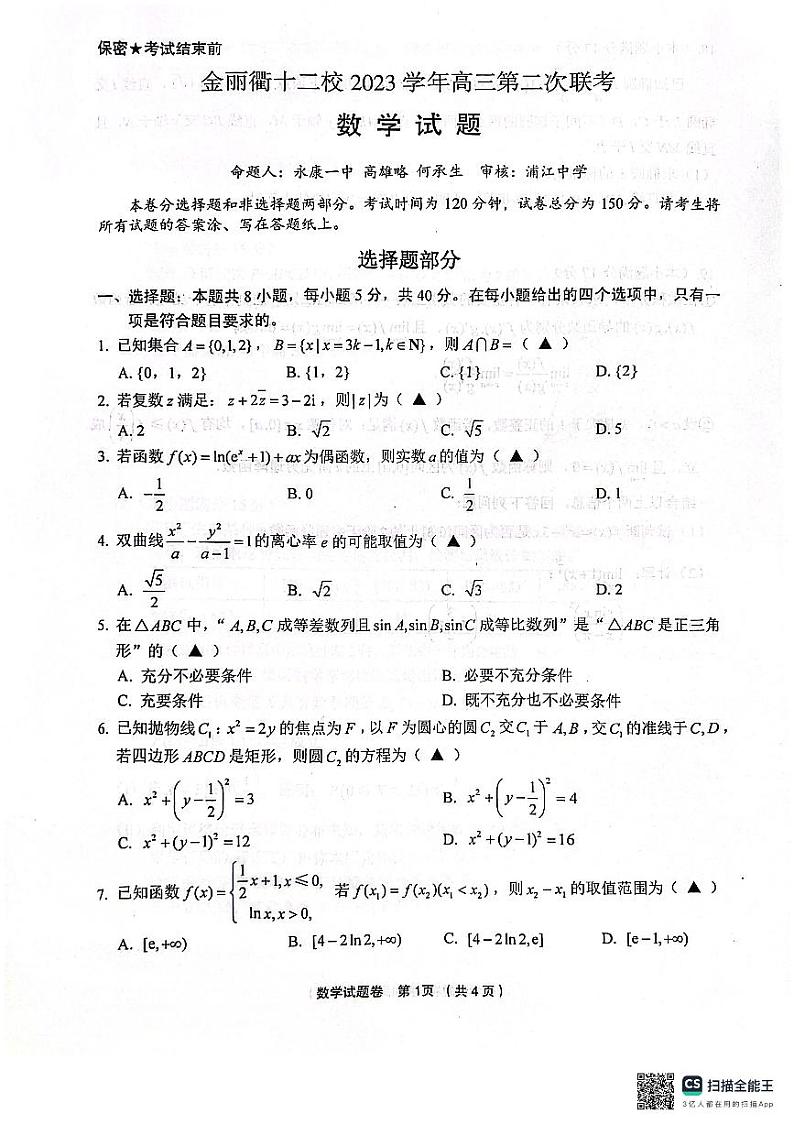 保密★考试结束前
金丽衢十二校 2023 学年高三第二次联考
数 学 试 题
命题人：永康一中 高雄略 何承生 审核：浦江中学
本卷分选择题和非选择题两部分。考试时间为 120 分钟，试卷总分为 150 分。请考生将
所有试题的答案涂、写在答题纸上。
选择题部分
一、选择题：本题共 8 小题，每小题 5 分，共 40 分。在每小题给出的四个选项中，只有一
项是符合题目要求的。
1. 已知集合 A={0,1,2}，B={x|x=3k−1,k∈N}，则 A∩B=（ ▲ ）
A. {0，1，2} B. {1，2} C. {1} D. {2}
2. 若复数 z 满足：z+2z̅=3−2i，则|z|为（ ▲ ）
A. 2 B. √2 C. √5 D. 5
3. 若函数 f(x)=ln(eˣ+1)+ax 为偶函数，则实数 a 的值为（ ▲ ）
A. −1/2 B. 0 C. 1/2 D. 1
4. 双曲线 x²/a − y²/(a−1) =1 的离心率 e 的可能取值为（ ▲ ）
A. √5/2 B. √2 C. √3 D. 2
5. 在△ABC 中，“ A,B,C 成等差数列且 sin A,sin B,sin C 成等比数列”是“△ABC 是正三角
形”的（ ▲ ）
A. 充分不必要条件 B. 必要不充分条件
C. 充要条件 D. 既不充分也不必要条件
6. 已知抛物线 C₁：x²=2y 的焦点为 F，以 F 为圆心的圆 C₂ 交 C₁ 于 A,B，交 C₁ 的准线于 C,D，
若四边形 ABCD 是矩形，则圆 C₂ 的方程为（ ▲ ）
A. x²+(y−1/2)²=3 B. x²+(y−1/2)²=4
C. x²+(y−1)²=12 D. x²+(y−1)²=16
7. 已知函数 f(x)={1/2 x+1,x≤0, ln x,x>0, 若 f(x₁)=f(x₂)(x₁<x₂)，则 x₂−x₁ 的取值范围为（ ▲ ）
A. [e,+∞) B. [4−2ln2,+∞) C. [4−2ln2,e] D. [e−1,+∞)
数学试题卷 第 1页 （共 4 页）
CS 扫描全能王
3亿人都在用的扫描App